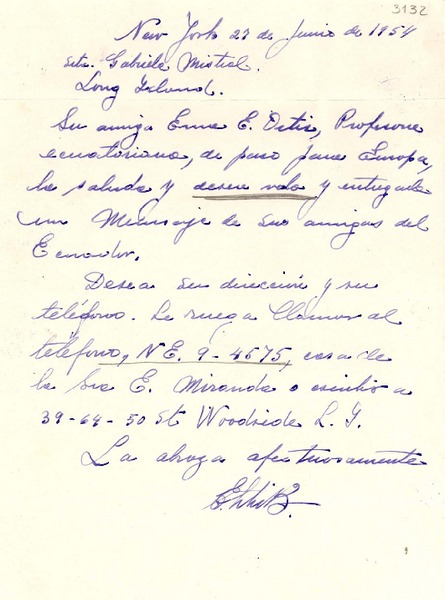 3132
New York 27 de Junio de 1954
Srta. Gabriela Mistral.
Long Island.
Su amiga Emma E. Ortiz, Profesora
ecuatoriana, de paso para Europa,
la saluda y desea verla y entregarle
un Mensaje de sus amigas del
Ecuador.
Desea su dirección y su
teléfono. Le ruega llamar al
teléfono, N E. 9-4675, casa de
la Sra E. Miranda o escribir a
39-64-50 St Woodside L. I.
La abraza afectuosamente